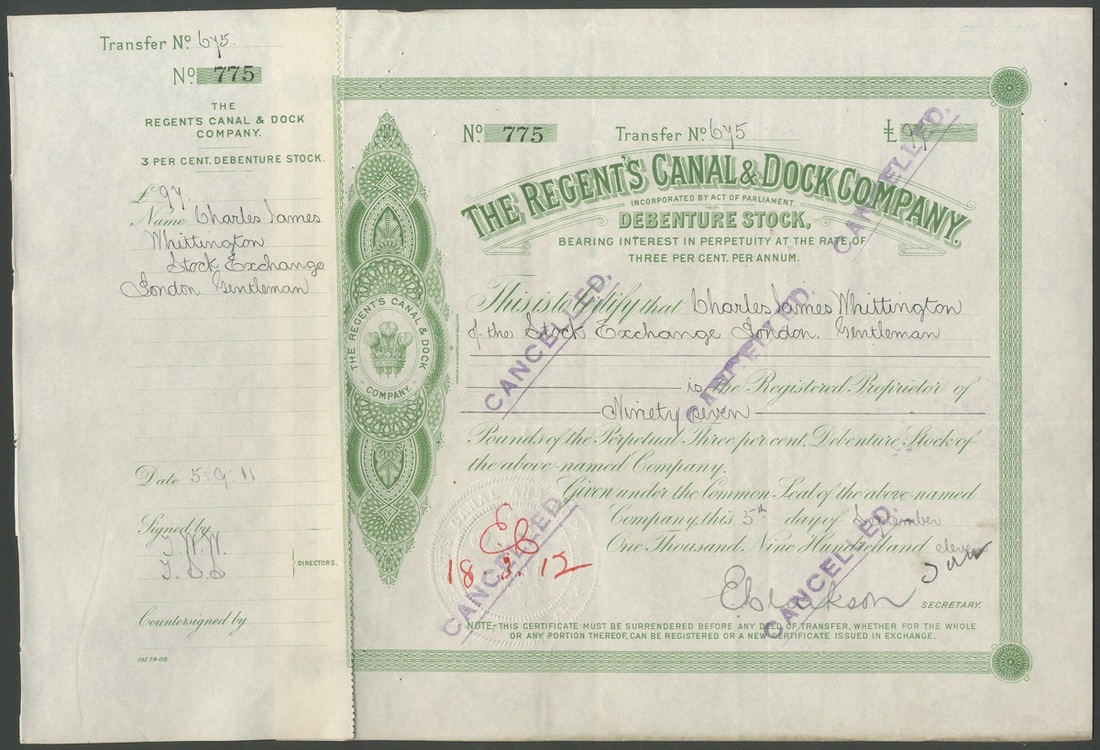 Transfer No. 675.
No. 775
THE
REGENT'S CANAL & DOCK
COMPANY.
3 PER CENT. DEBENTURE STOCK.
£97.
Name Charles James
Whittington
Stock Exchange
London. Gentleman
Date 5.9.11
Signed by
DIRECTORS.
Countersigned by
No. 775 Transfer No. 675 £97
THE REGENT'S CANAL & DOCK COMPANY.
INCORPORATED BY ACT OF PARLIAMENT.
DEBENTURE STOCK,
BEARING INTEREST IN PERPETUITY AT THE RATE OF
THREE PER CENT. PER ANNUM.
THE REGENT'S CANAL & DOCK
COMPANY.
This is to Certify that Charles James Whittington
of the Stock Exchange London. Gentleman
is the Registered Proprietor of
Ninety seven
Pounds of the Perpetual Three per cent. Debenture Stock of
the above-named Company.
Given under the Common Seal of the above-named
Company, this 5th day of September
One Thousand Nine Hundred and eleven
18.3.12
SECRETARY.
NOTE:- THIS CERTIFICATE MUST BE SURRENDERED BEFORE ANY DEED OF TRANSFER, WHETHER FOR THE WHOLE
OR ANY PORTION THEREOF, CAN BE REGISTERED OR A NEW CERTIFICATE ISSUED IN EXCHANGE.
CANCELLED.
CANCELLED.
CANCELLED.
CANCELLED.
CANCELLED.